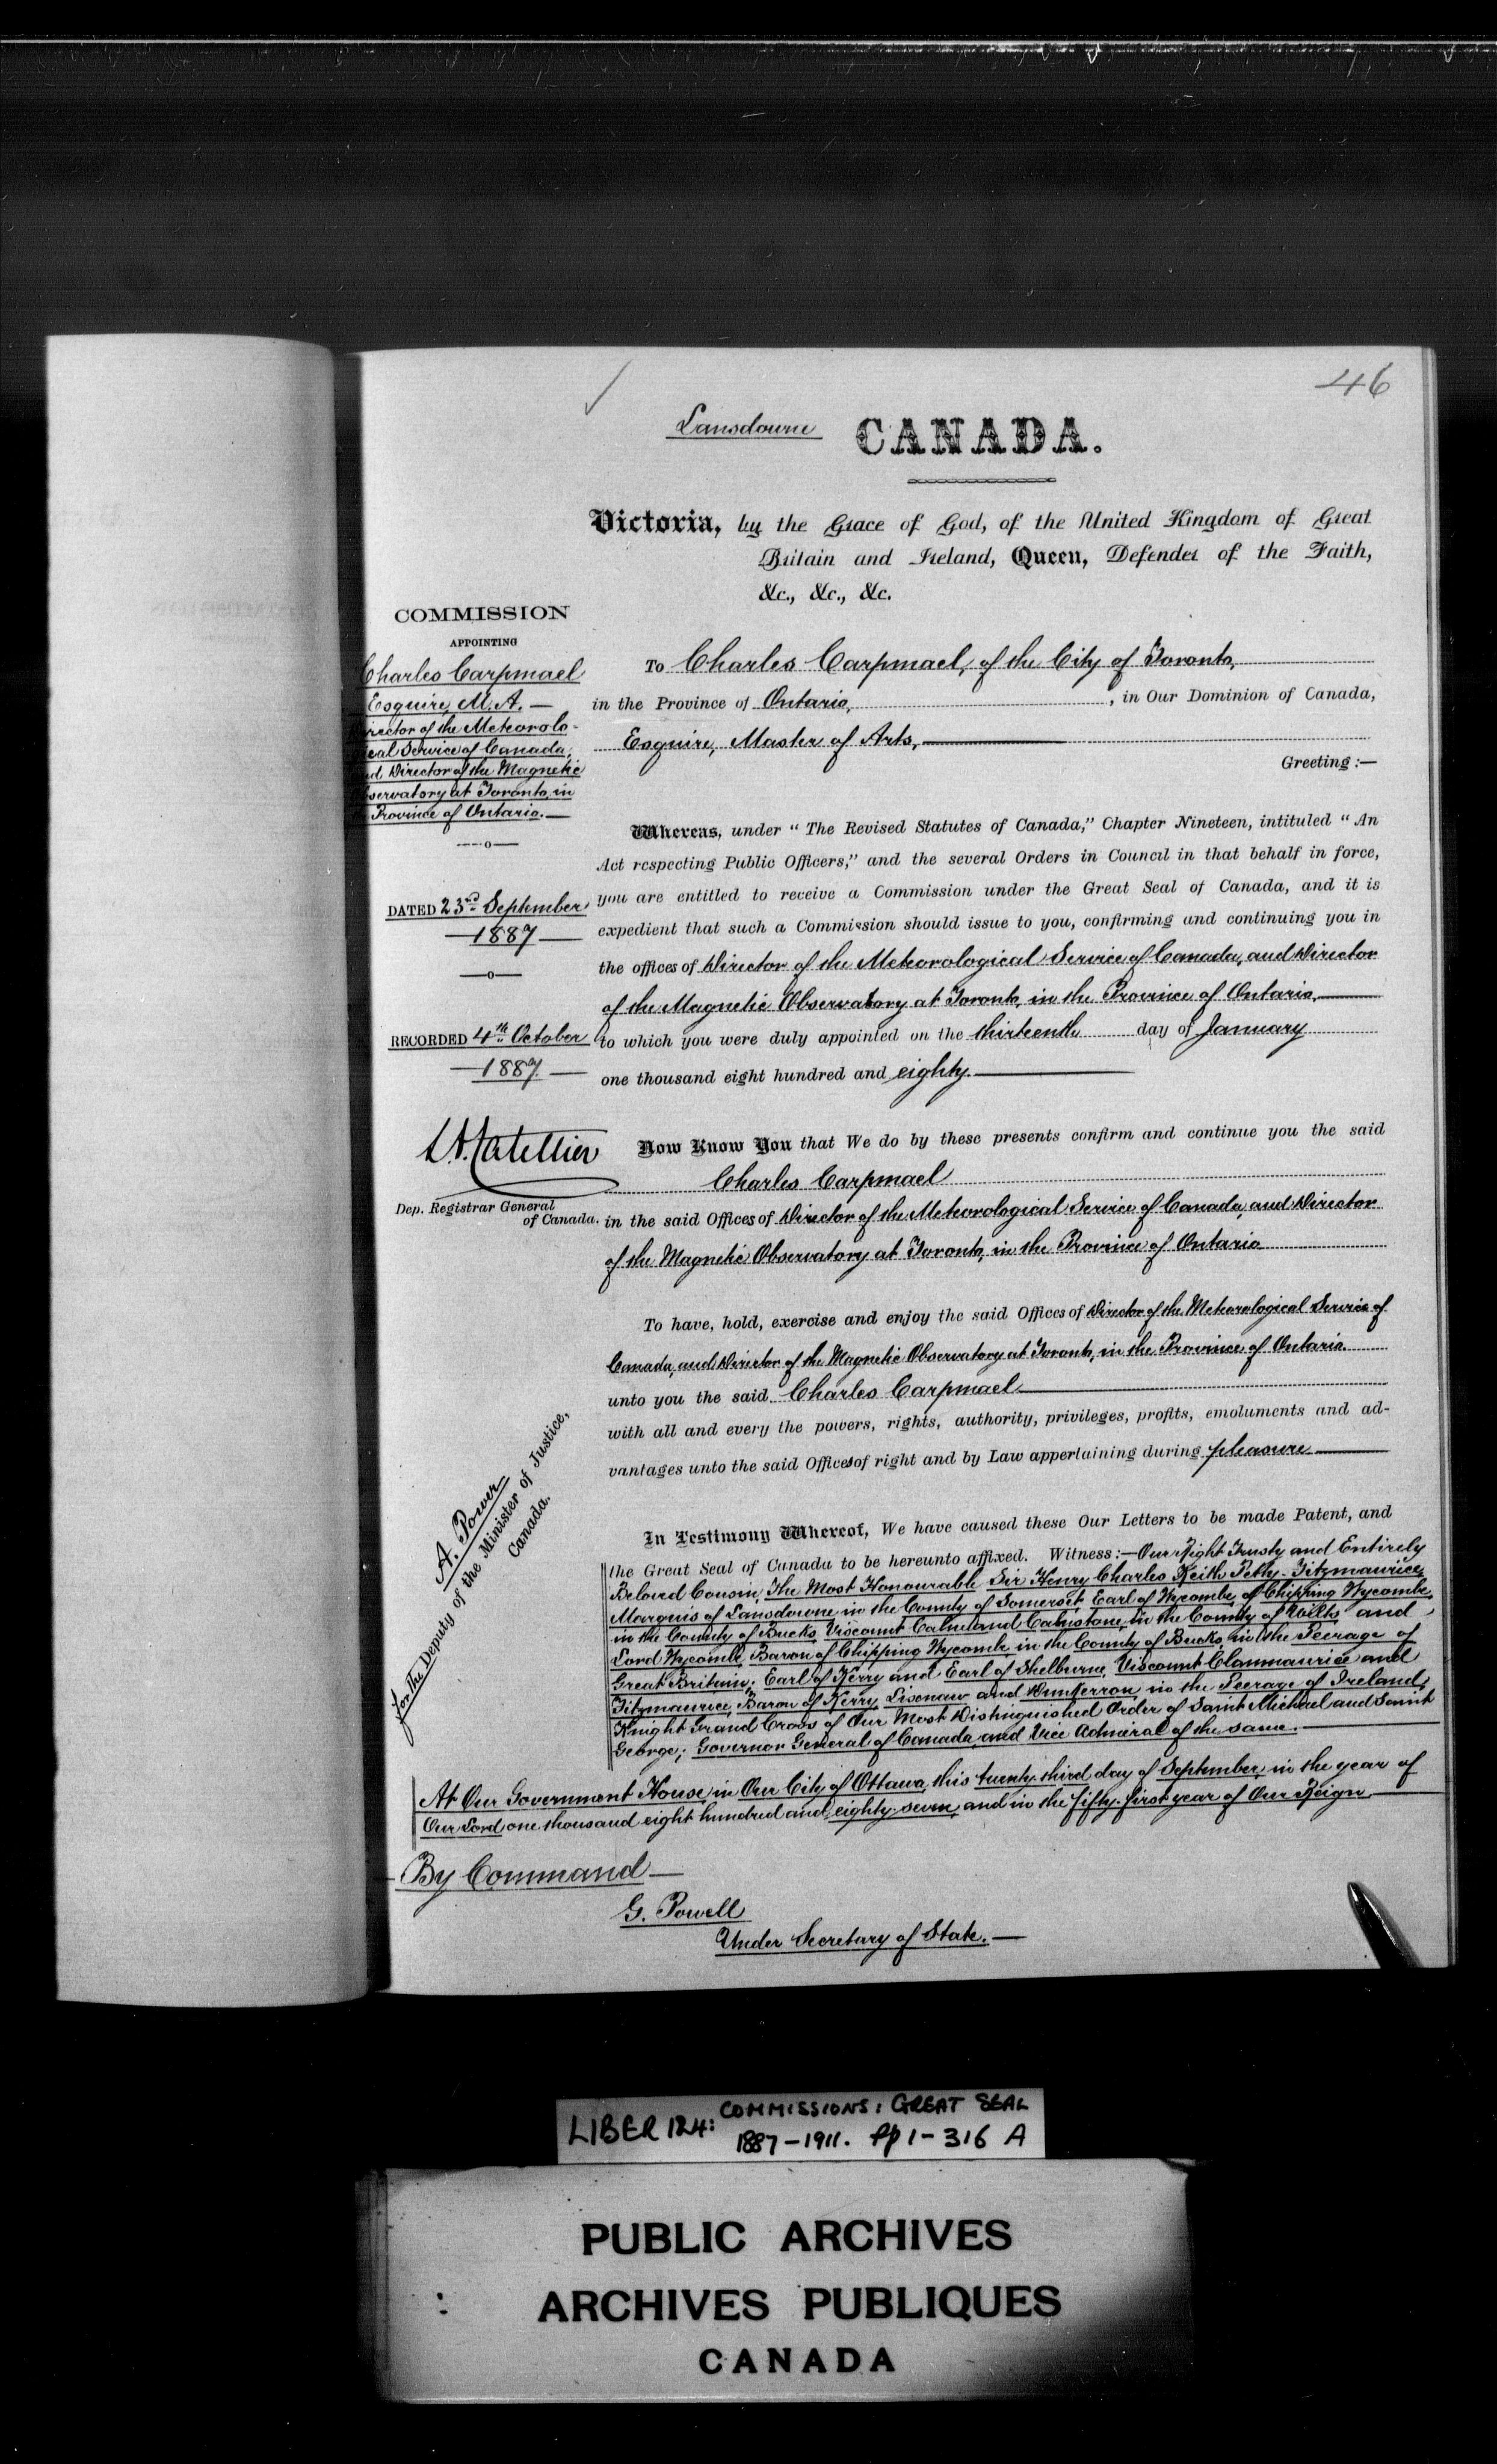 46
Lansdowne CANADA.
Victoria, by the Grace of God, of the United Kingdom of Great
Britain and Ireland, Queen, Defender of the Faith,
&c., &c., &c.
COMMISSION
APPOINTING
Charles Carpmael
Esquire, M.A. —
Director of the Meteorolo-
gical Service of Canada,
and Director of the Magnetic
Observatory at Toronto, in
the Province of Ontario. —
—o—
DATED 23rd September
—1887—
—o—
RECORDED 4th October
—1887—
Dep. Registrar General
of Canada.
To Charles Carpmael, of the City of Toronto,
in the Province of Ontario, , in Our Dominion of Canada,
Esquire, Master of Arts,—
Greeting :—
Whereas, under “ The Revised Statutes of Canada,” Chapter Nineteen, intituled “ An
Act respecting Public Officers,” and the several Orders in Council in that behalf in force,
you are entitled to receive a Commission under the Great Seal of Canada, and it is
expedient that such a Commission should issue to you, confirming and continuing you in
the offices of Director of the Meteorological Service of Canada, and Director
of the Magnetic Observatory at Toronto, in the Province of Ontario,—
to which you were duly appointed on the thirteenth day of January
one thousand eight hundred and eighty.—
Now Know You that We do by these presents confirm and continue you the said
Charles Carpmael
in the said Offices of Director of the Meteorological Service of Canada, and Director
of the Magnetic Observatory at Toronto, in the Province of Ontario
To have, hold, exercise and enjoy the said Offices of Director of the Meteorological Service of
Canada, and Director of the Magnetic Observatory at Toronto, in the Province of Ontario
unto you the said Charles Carpmael—
with all and every the powers, rights, authority, privileges, profits, emoluments and ad-
vantages unto the said Offices of right and by Law appertaining during pleasure—
A. Power
for the Deputy of the Minister of Justice,
Canada.
In Testimony Whereof, We have caused these Our Letters to be made Patent, and
the Great Seal of Canada to be hereunto affixed. Witness :—Our Right Trusty and Entirely
Beloved Cousin, The Most Honourable Sir Henry Charles Keith Petty-Fitzmaurice,
Marquis of Lansdowne in the County of Somerset, Earl of Wycombe, of Chipping Wycombe,
in the County of Bucks, Viscount Calne and Calnstone, in the County of Wilts and
Lord Wycombe, Baron of Chipping Wycombe in the County of Bucks, in the Peerage of
Great Britain; Earl of Kerry and Earl of Shelburne, Viscount Clanmaurice and
Fitzmaurice, Baron of Kerry, Lixnaw and Dunkerron, in the Peerage of Ireland;
Knight Grand Cross of Our Most Distinguished Order of Saint Michael and Saint
George; Governor General of Canada and Vice Admiral of the same.—
At Our Government House, in Our City of Ottawa, this twenty-third day of September, in the year of
Our Lord one thousand eight hundred and eighty-seven, and in the fifty-first year of Our Reign—
By Command—
G. Powell
Under Secretary of State.—
LIBER 124: COMMISSIONS: GREAT SEAL
1887-1911. pp 1-316 A
PUBLIC ARCHIVES
ARCHIVES PUBLIQUES
CANADA